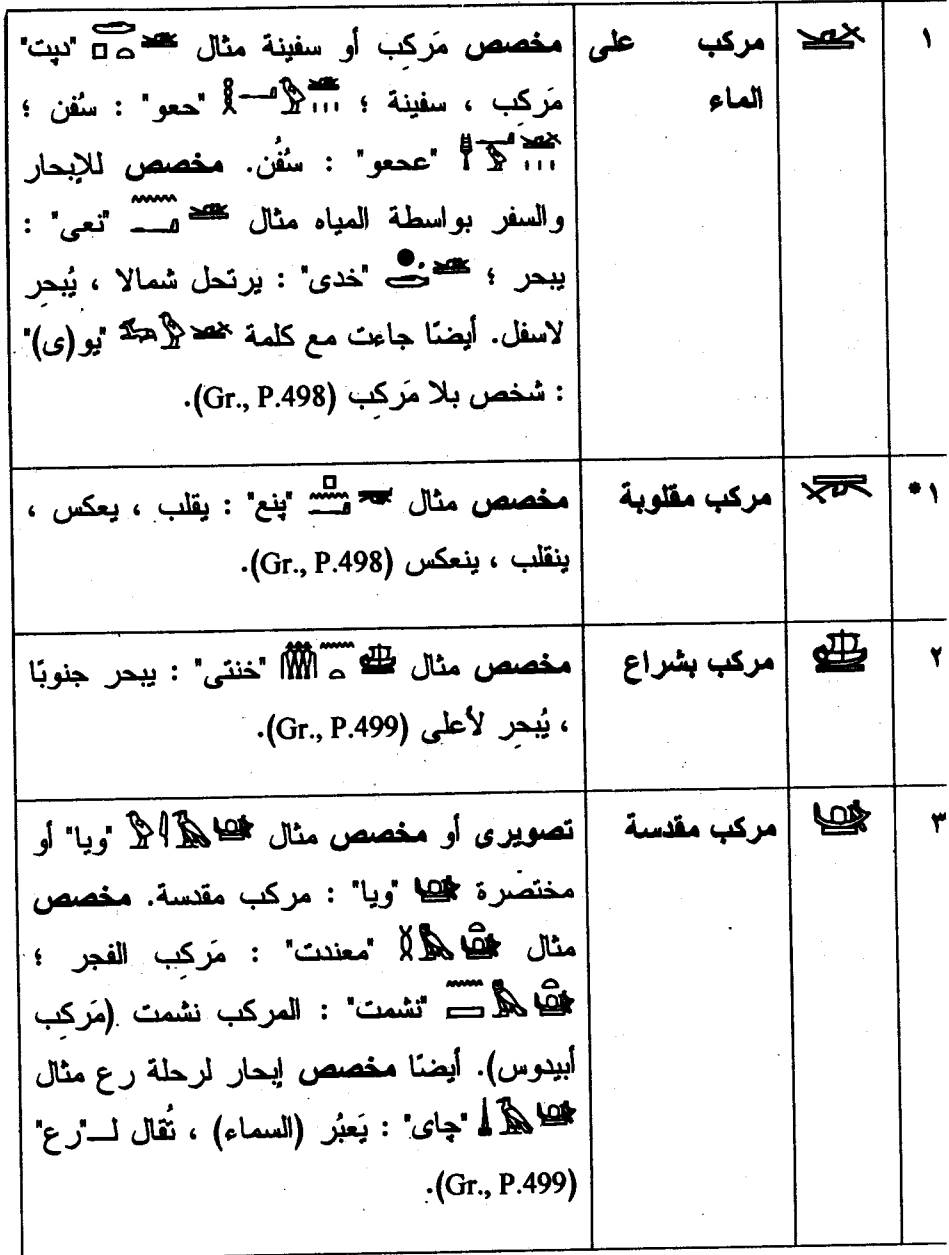 ١ 𓊛 مركب على الماء مخصص مَركب أو سفينة مثال "دپت"
مَركب ، سفينة ؛ "حعو" : سُفن ؛
"عحعو" : سُفن. مخصص للإبحار
والسفر بواسطة المياه مثال "نعى" :
يبحر ؛ "خدى" : يرتحل شمالا ، يُبحر
لاسفل. أيضًا جاءت مع كلمة "يو(ى)"
: شخص بلا مَركب (Gr., P.498).
١* مركب مقلوبة مخصص مثال "پنع" : يقلب ، يعكس ،
ينقلب ، ينعكس (Gr., P.498).
٢ مركب بشراع مخصص مثال "خنتى" : يبحر جنوبًا
، يُبحر لأعلى (Gr., P.499).
٣ مركب مقدسة تصويرى أو مخصص مثال "ويا" أو
مختصرة "ويا" : مركب مقدسة. مخصص
مثال "معندت" : مَركب الفجر ؛
"نشمت" : المركب نشمت (مَركب
أبيدوس). أيضًا مخصص إبحار لرحلة رع مثال
"چاى" : يَعبُر (السماء) ، تُقال لــ"رع"
(Gr., P.499).